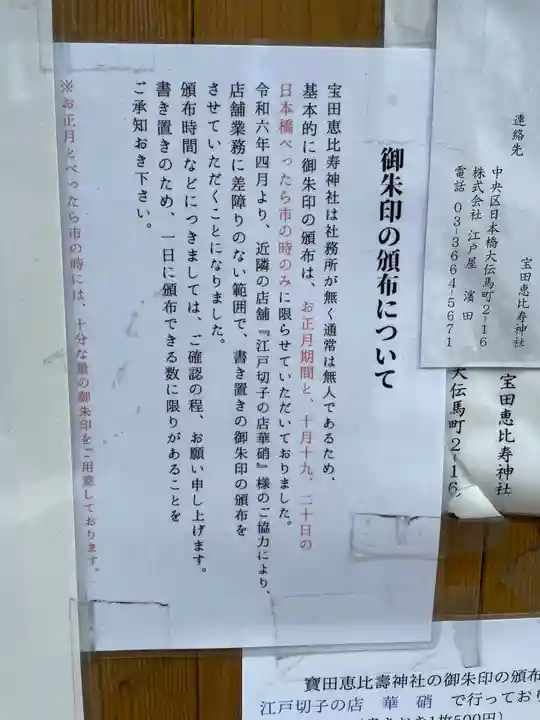 御朱印の頒布について
宝田恵比寿神社は社務所が無く通常は無人であるため、
基本的に御朱印の頒布は、お正月期間と、十月十九、二十日の
日本橋べったら市の時のみに限らせていただいておりました。
令和六年四月より、近隣の店舗『江戸切子の店華硝』様のご協力により、
店舗業務に差障りのない範囲で、書き置きの御朱印の頒布を
させていただくことになりました。
頒布時間などにつきましては、ご確認の程、お願い申し上げます。
書き置きのため、一日に頒布できる数に限りがあることを
ご承知おき下さい。
※お正月とべったら市の時には、十分な量の御朱印をご用意しております。
連絡先
宝田恵比寿神社
中央区日本橋大伝馬町2-16
株式会社 江戸屋 濱田
電話 03-3664-5671
宝田恵比寿神社
大伝馬町2-16
寶田恵比壽神社の御朱印の頒布
江戸切子の店 華硝 で行っており
500円)